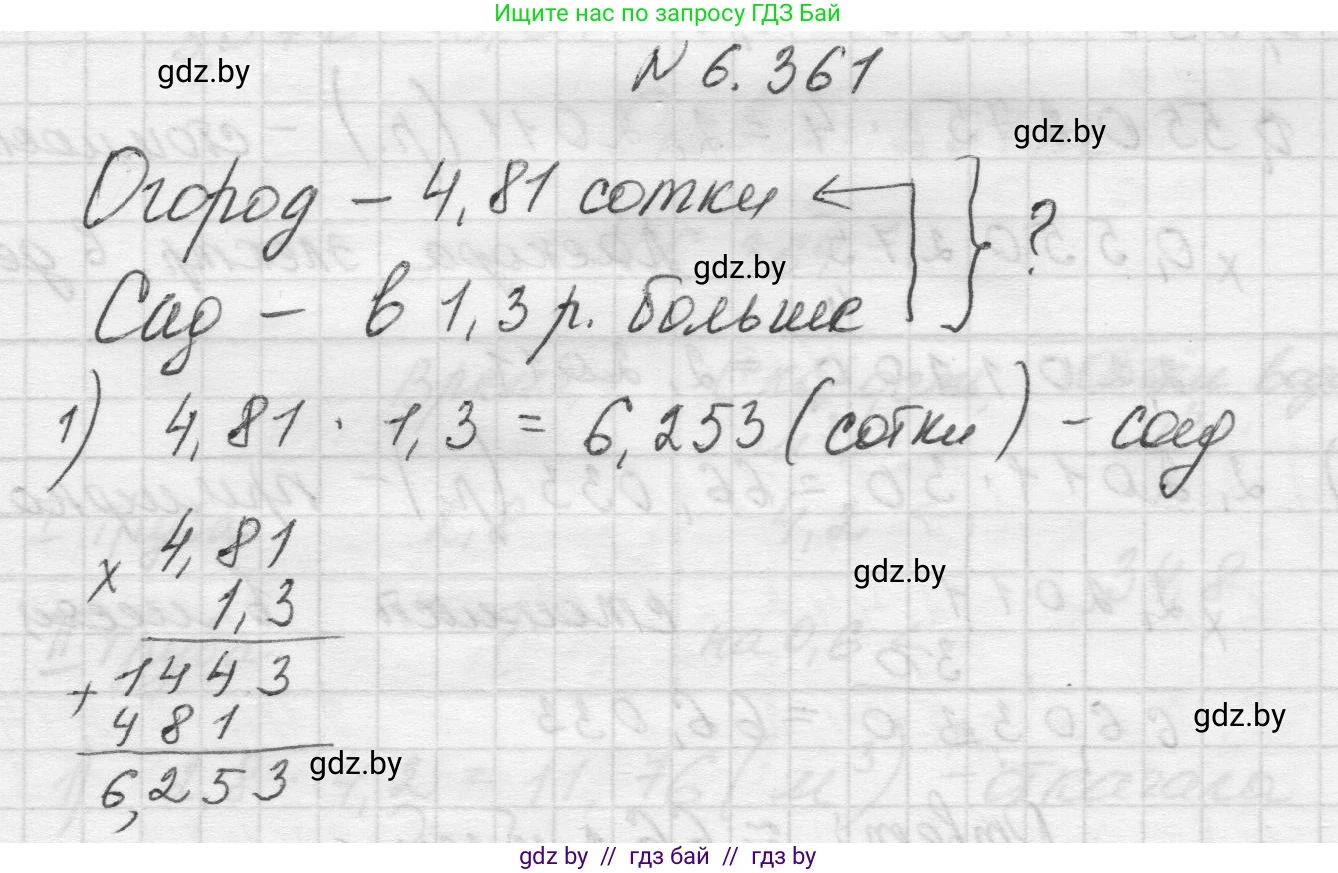 Ищите нас по запросу ГДЗ Бай
gdz.by
N 6.361
gdz.by
Огород – 4,81 сотки
?
gdz.by
Сад – в 1,3 р. больше
1) 4,81 · 1,3 = 6,253 (сотки) – сад
4,81
x
1,3
gdz.by
+ 1443
481
gdz.by
gdz.by
6,253
gdz by // гдз бай // gdz by